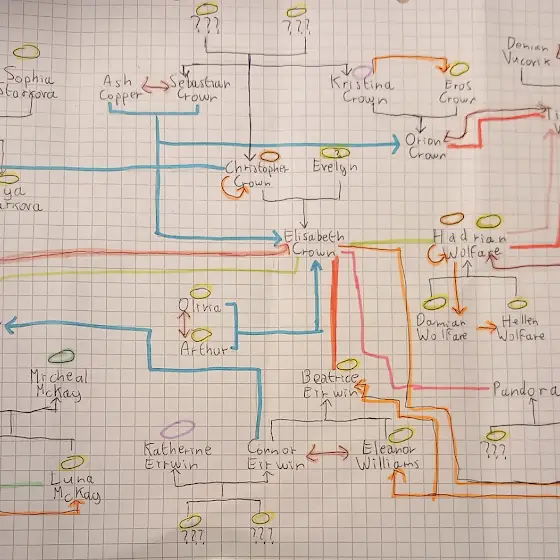 ???
???
Demian
Vucovik
Sophia
Starkova
Ash
Copper
Sebastian
Crown
Kristina
Crown
Eros
Crown
Orion
Crown
Christopher
Crown
Evelyn
?
ya
arkova
Elisabeth
Crown
Hadrian
Wolfare
Olivia
Arthur
Damian
Wolfare
Hellen
Wolfare
Micheal
McKay
Beatrice
Eirwin
Pandora
Katherine
Eirwin
Connor
Eirwin
Eleanor
Williams
???
Luna
McKay
???
???